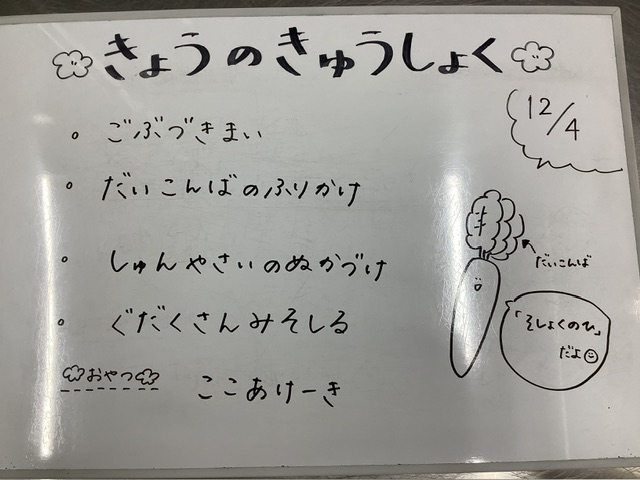 きょうのきゅうしょく
12/4
・ごぶづきまい
・だいこんばのふりかけ
・しゅんやさいのぬかづけ
・ぐだくさんみそしる
おやつ ここあけーき
だいこんば
「そしょくのひ」
だよ